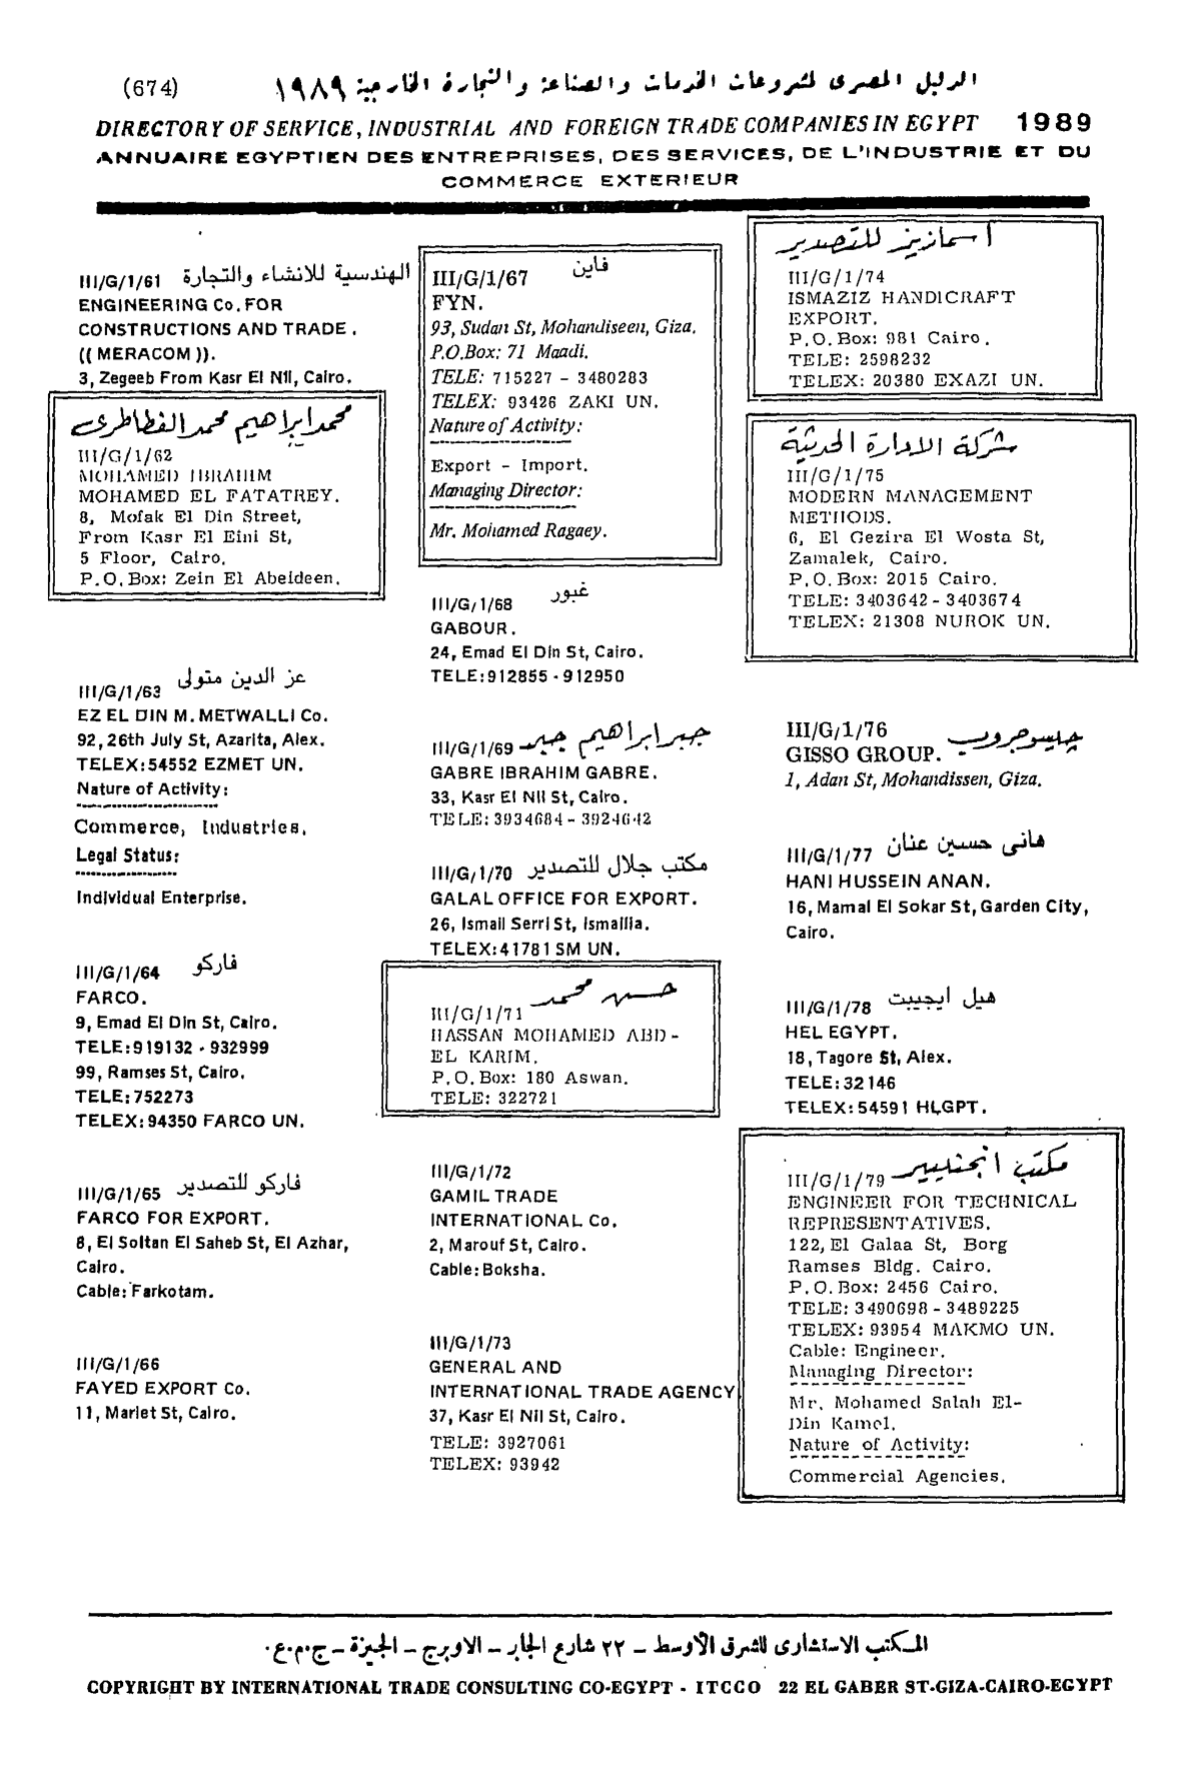 (674)
الدليل المصرى لمشروعات الخدمات والصناعة والتجارة الخارجية ١٩٨٩
DIRECTORY OF SERVICE, INDUSTRIAL AND FOREIGN TRADE COMPANIES IN EGYPT 1989
ANNUAIRE EGYPTIEN DES ENTREPRISES, DES SERVICES, DE L'INDUSTRIE ET DU
COMMERCE EXTERIEUR
III/G/1/61 الهندسية للانشاء والتجارة
ENGINEERING Co. FOR
CONSTRUCTIONS AND TRADE.
(( MERACOM )).
3, Zegeeb From Kasr El Nil, Cairo.
محمد ابراهيم محمد الفطاطرى
III/G/1/62
MOHAMED IBRAHIM
MOHAMED EL FATATREY.
8, Mofak El Din Street,
From Kasr El Eini St,
5 Floor, Cairo.
P.O.Box: Zein El Abeideen.
III/G/1/63 عز الدين متولى
EZ EL DIN M. METWALLI Co.
92, 26th July St, Azarita, Alex.
TELEX: 54552 EZMET UN.
Nature of Activity:
Commerce, Industries.
Legal Status:
Individual Enterprise.
III/G/1/64 فاركو
FARCO.
9, Emad El Din St, Cairo.
TELE: 919132 - 932999
99, Ramses St, Cairo.
TELE: 752273
TELEX: 94350 FARCO UN.
III/G/1/65 فاركو للتصدير
FARCO FOR EXPORT.
8, El Soltan El Saheb St, El Azhar,
Cairo.
Cable: Farkotam.
III/G/1/66
FAYED EXPORT Co.
11, Mariet St, Cairo.
III/G/1/67 فاين
FYN.
93, Sudan St, Mohandiseen, Giza.
P.O.Box: 71 Maadi.
TELE: 715227 - 3480283
TELEX: 93426 ZAKI UN.
Nature of Activity:
Export - Import.
Managing Director:
Mr. Mohamed Ragaey.
III/G/1/68 غبور
GABOUR.
24, Emad El Din St, Cairo.
TELE: 912855 - 912950
III/G/1/69 جبر ابراهيم جبر
GABRE IBRAHIM GABRE.
33, Kasr El Nil St, Cairo.
TELE: 3934684 - 3924642
III/G/1/70 مكتب جلال للتصدير
GALAL OFFICE FOR EXPORT.
26, Ismail Serri St, Ismailia.
TELEX: 41781 SM UN.
حسن محمد
III/G/1/71
HASSAN MOHAMED ABD-
EL KARIM.
P.O.Box: 180 Aswan.
TELE: 322721
III/G/1/72
GAMIL TRADE
INTERNATIONAL Co.
2, Marouf St, Cairo.
Cable: Boksha.
III/G/1/73
GENERAL AND
INTERNATIONAL TRADE AGENCY
37, Kasr El Nil St, Cairo.
TELE: 3927061
TELEX: 93942
اسمازيز للتصدير
III/G/1/74
ISMAZIZ HANDICRAFT
EXPORT.
P.O.Box: 981 Cairo.
TELE: 2598232
TELEX: 20380 EXAZI UN.
شركة الادارة الحديثة
III/G/1/75
MODERN MANAGEMENT
METHODS.
6, El Gezira El Wosta St,
Zamalek, Cairo.
P.O.Box: 2015 Cairo.
TELE: 3403642 - 3403674
TELEX: 21308 NUROK UN.
III/G/1/76
GISSO GROUP. جيسوجروب
1, Adan St, Mohandissen, Giza.
III/G/1/77 هانى حسين عنان
HANI HUSSEIN ANAN.
16, Mamal El Sokar St, Garden City,
Cairo.
III/G/1/78 هيل ايجيبت
HEL EGYPT.
18, Tagore St, Alex.
TELE: 32146
TELEX: 54591 HLGPT.
III/G/1/79 مكتب انجنيير
ENGINEER FOR TECHNICAL
REPRESENTATIVES.
122, El Galaa St, Borg
Ramses Bldg. Cairo.
P.O.Box: 2456 Cairo.
TELE: 3490698 - 3489225
TELEX: 93954 MAKMO UN.
Cable: Engineer.
Managing Director:
Mr. Mohamed Salah El-
Din Kamel.
Nature of Activity:
Commercial Agencies.
المكتب الاستشارى للشرق الأوسط - ٢٢ شارع الجابر - الاوبرج - الجيزة - ج.م.ع.
COPYRIGHT BY INTERNATIONAL TRADE CONSULTING CO-EGYPT - ITCCO 22 EL GABER ST-GIZA-CAIRO-EGYPT